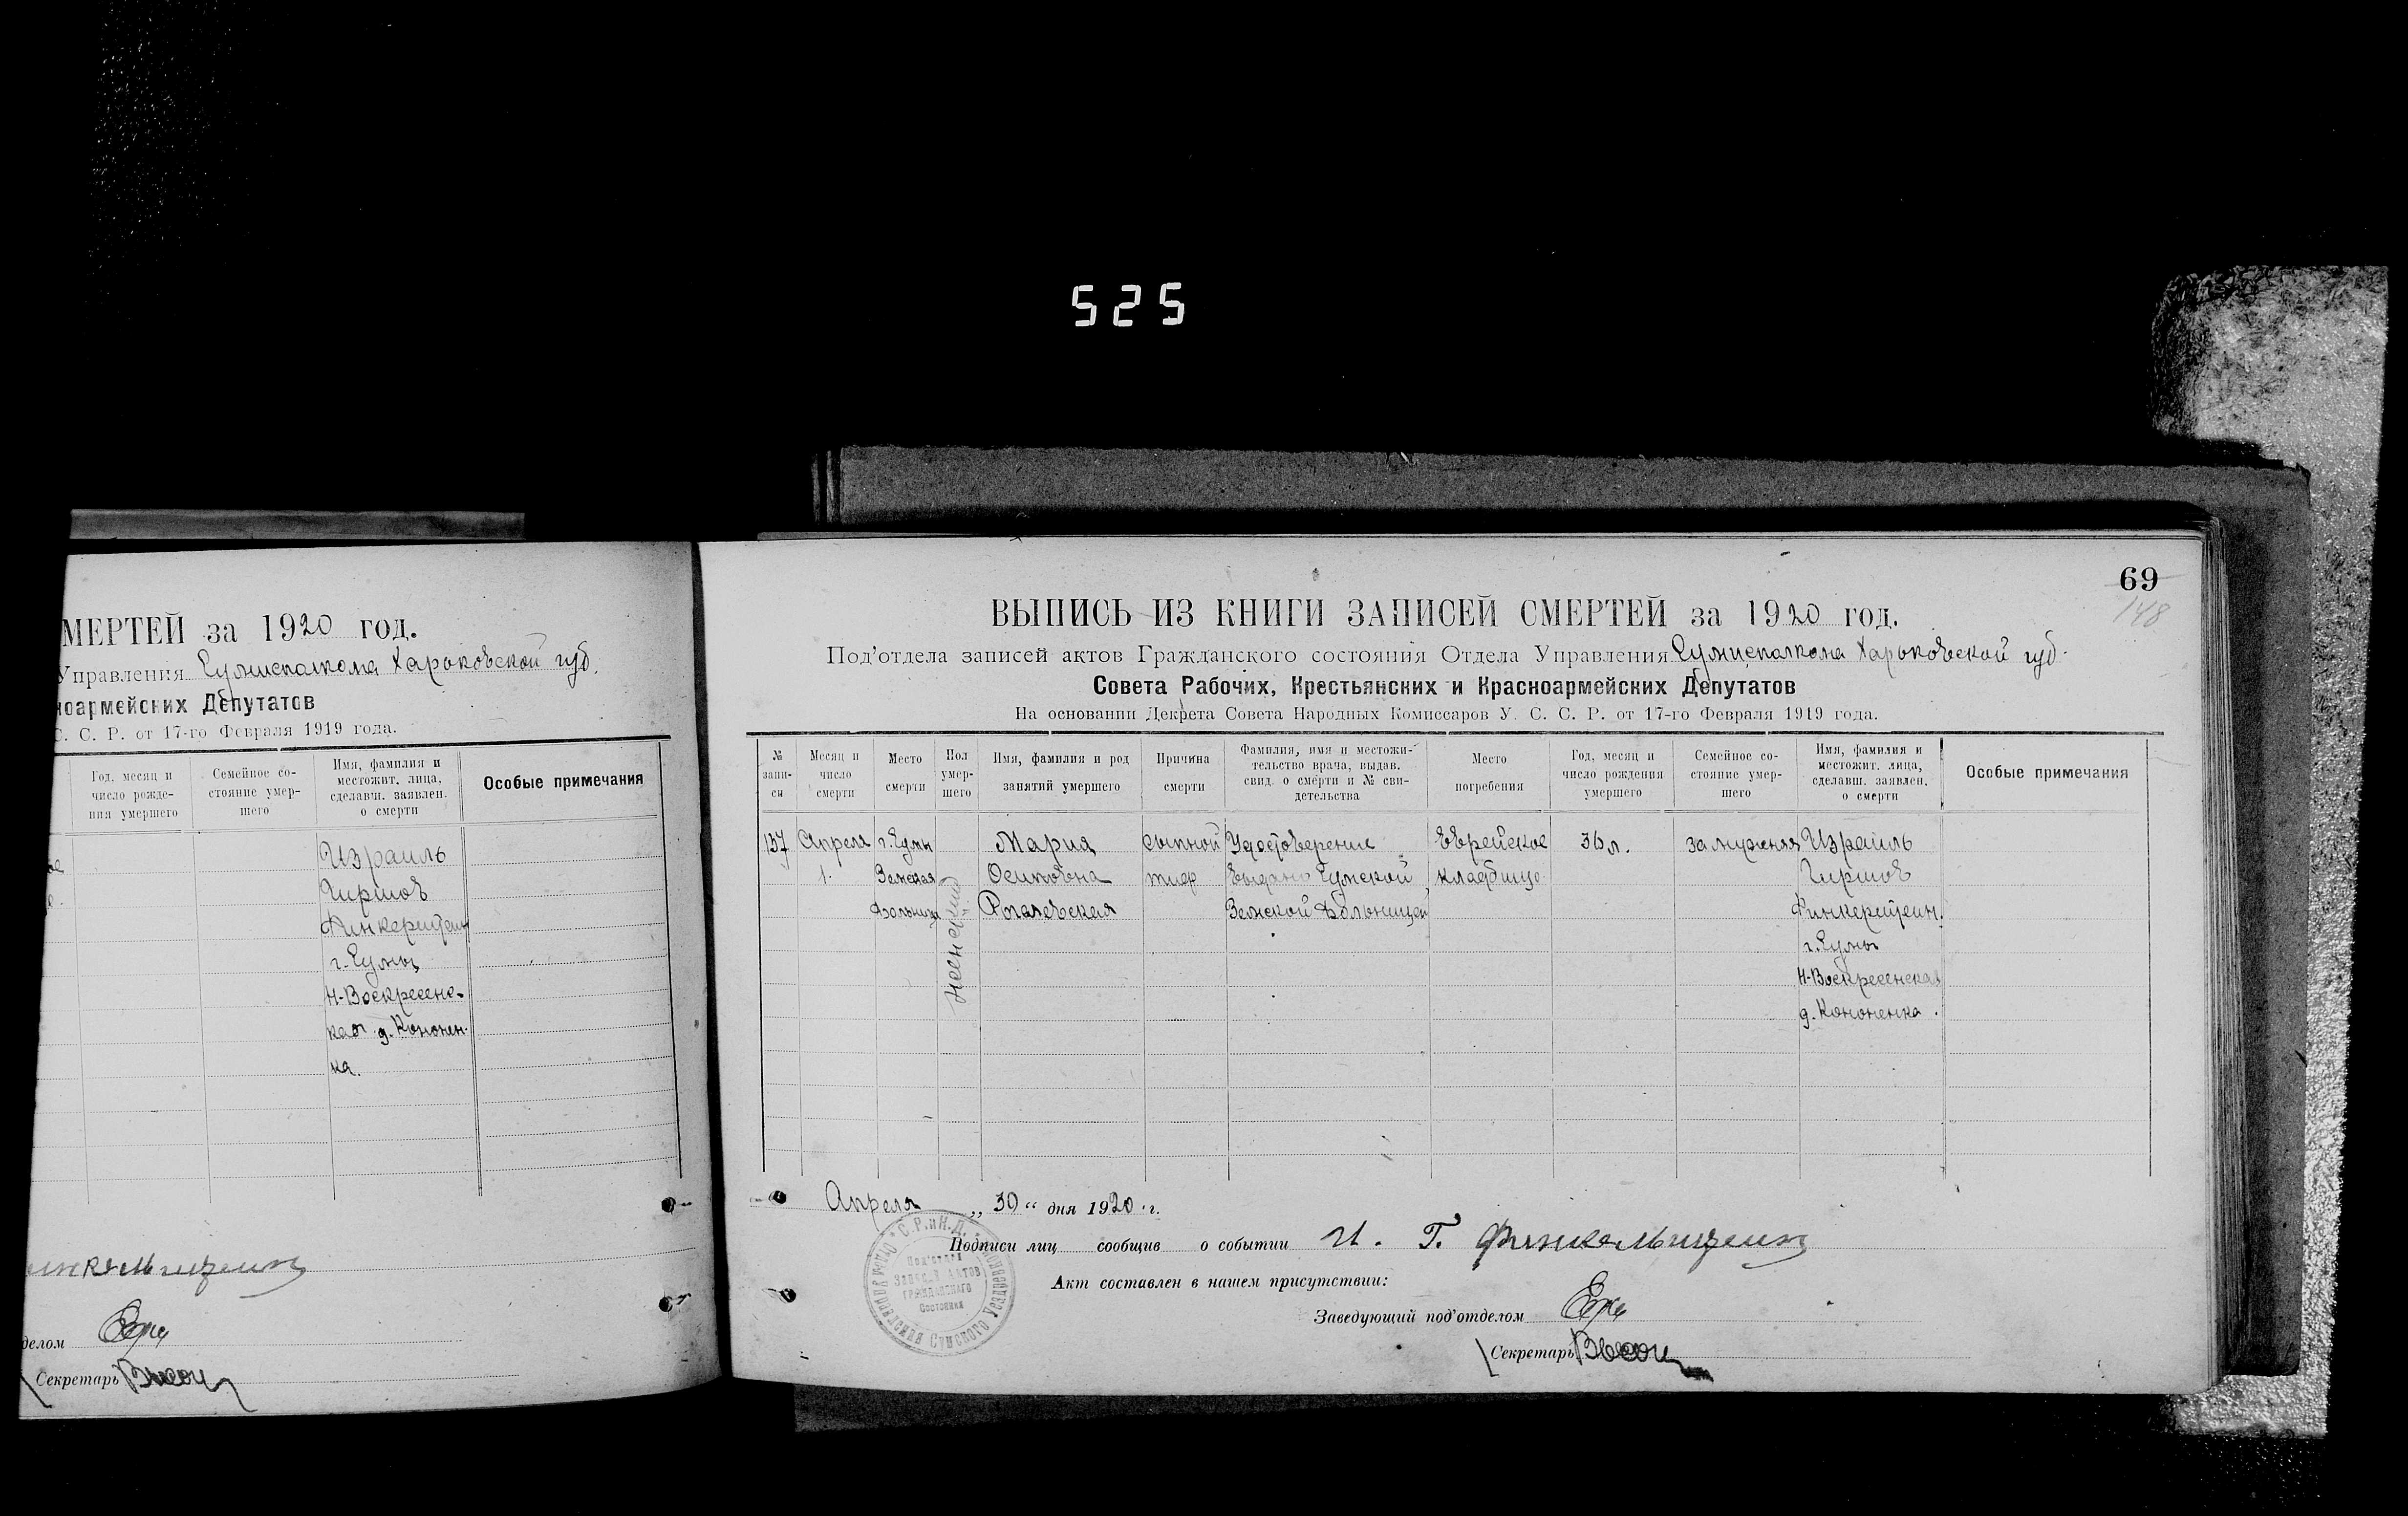 525
МЕРТЕЙ за 1920 год.
Управления Сумисполкома Харьковской губ.
ноармейских Депутатов
С. С. Р. от 17-го Февраля 1919 года.
Год, месяц и
число рожде-
ния умершего
Семейное со-
стояние умер-
шего
Имя, фамилия и
местожит. лица,
сделавш. заявлен.
о смерти
Особые примечания
Израиль
Гиршов
Финкерштейн
г. Сумы
Н-Воскресенс-
кая д. Кононен-
ка.
делом
Секретарь
69
148
ВЫПИСЬ ИЗ КНИГИ ЗАПИСЕЙ СМЕРТЕЙ за 1920 год.
Под'отдела записей актов Гражданского состояния Отдела Управления Сумисполкома Харьковской губ.
Совета Рабочих, Крестьянских и Красноармейских Депутатов
На основании Декрета Совета Народных Комиссаров У. С. С. Р. от 17-го Февраля 1919 года.
№
запи-
си
Месяц и
число
смерти
Место
смерти
Пол
умер-
шего
Имя, фамилия и род
занятий умершего
Причина
смерти
Фамилия, имя и местожи-
тельство врача, выдав.
свид. о смерти и № сви-
детельства
Место
погребения
Год, месяц и
число рождения
умершего
Семейное со-
стояние умер-
шего
Имя, фамилия и
местожит. лица,
сделавш. заявлен.
о смерти
Особые примечания
137
Апреля
1.
г. Сумы
Земская
больница
женский
Мария
Осиповна
Рогачевская
сыпной
тиф
Удостоверение
выдано Сумской
Земской больницей
Еврейское
кладбище
36 л.
замужняя
Израиль
Гиршов
Финкерштейн.
г. Сумы
Н-Воскресенская
д. Кононенка.
Апреля „30“ дня 1920 г.
Подписи лиц сообщив о событии И. Г. Финкельштейн
Акт составлен в нашем присутствии:
Заведующий под'отделом
Секретарь